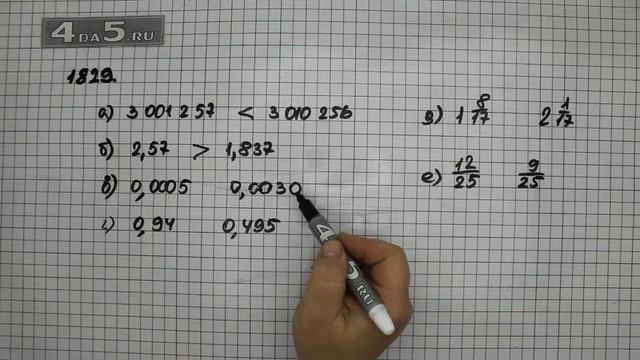 4DA5.RU
1829.
а) 3 001 257 < 3 010 256
б) 2,57 > 1,837
в) 0,0005 0,0030
г) 0,94 0,495
д) 1 8/17 2 1/17
е) 12/25 9/25
4
5.RU